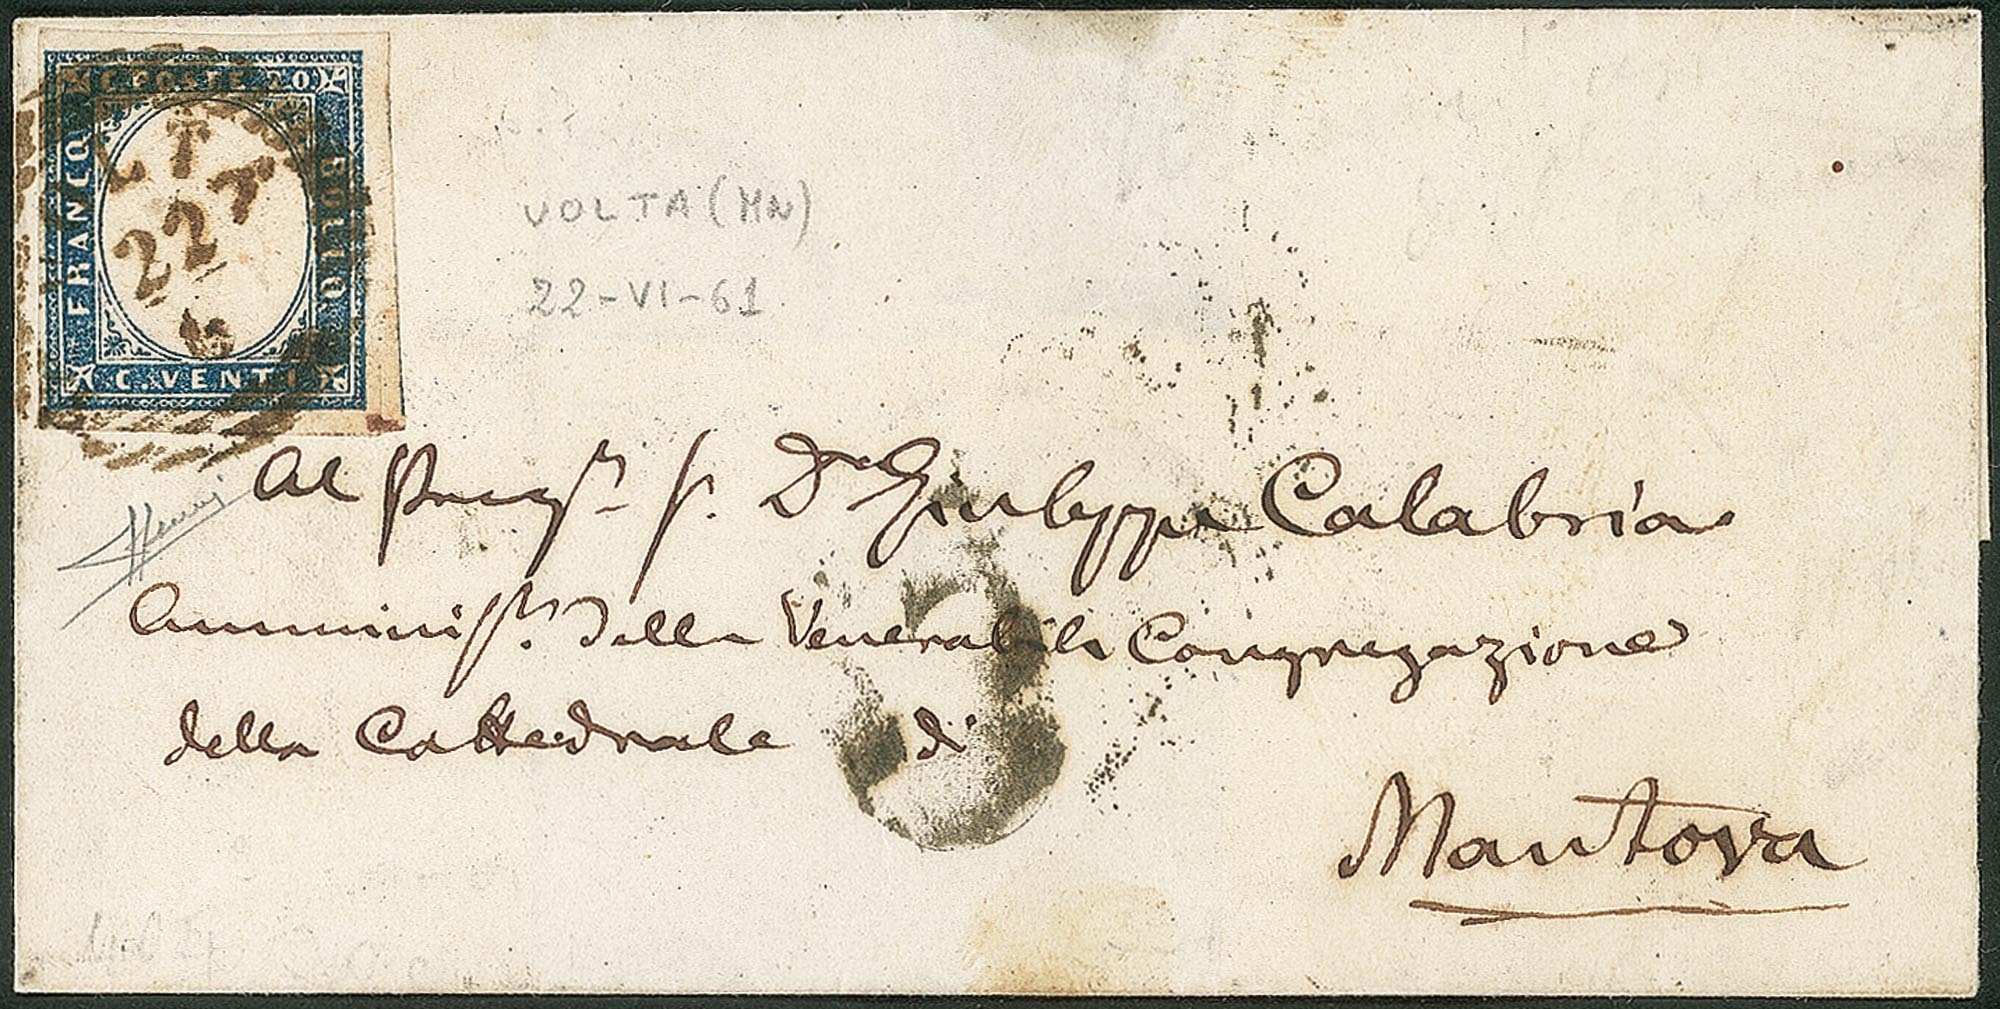 C. POSTE 20
FRANCO
BOLLO
C. VENTI
22
6
VOLTA (MN)
22-VI-61
3
Al Preg.r S. Dr Giuseppe Calabria
Amminis.r della Venerabile Congregazione
della Cattedrale di
Mantova